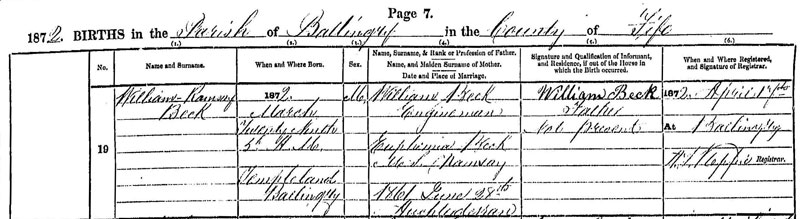 Page 7.
1872. BIRTHS in the Parish of Ballingry in the County of Fife
(1.) (2.) (3.) (4.) (5.) (6.)
No.
Name and Surname.
When and Where Born.
Sex.
Name, Surname, & Rank or Profession of Father.
Name, and Maiden Surname of Mother.
Date and Place of Marriage.
Signature and Qualification of Informant,
and Residence, if out of the House in
which the Birth occurred.
When and Where Registered,
and Signature of Registrar.
19
William Ramsay
Beck
1872.
March
Twenty ninth
5h
Templeland
Ballingry
M.
William Beck
Engineman
Euphemia Beck
M.S. Ramsay
1861 June 28th
Auchterderran
William Beck
Father
Not Present
1872. April 17th
At Ballingry
Registrar.